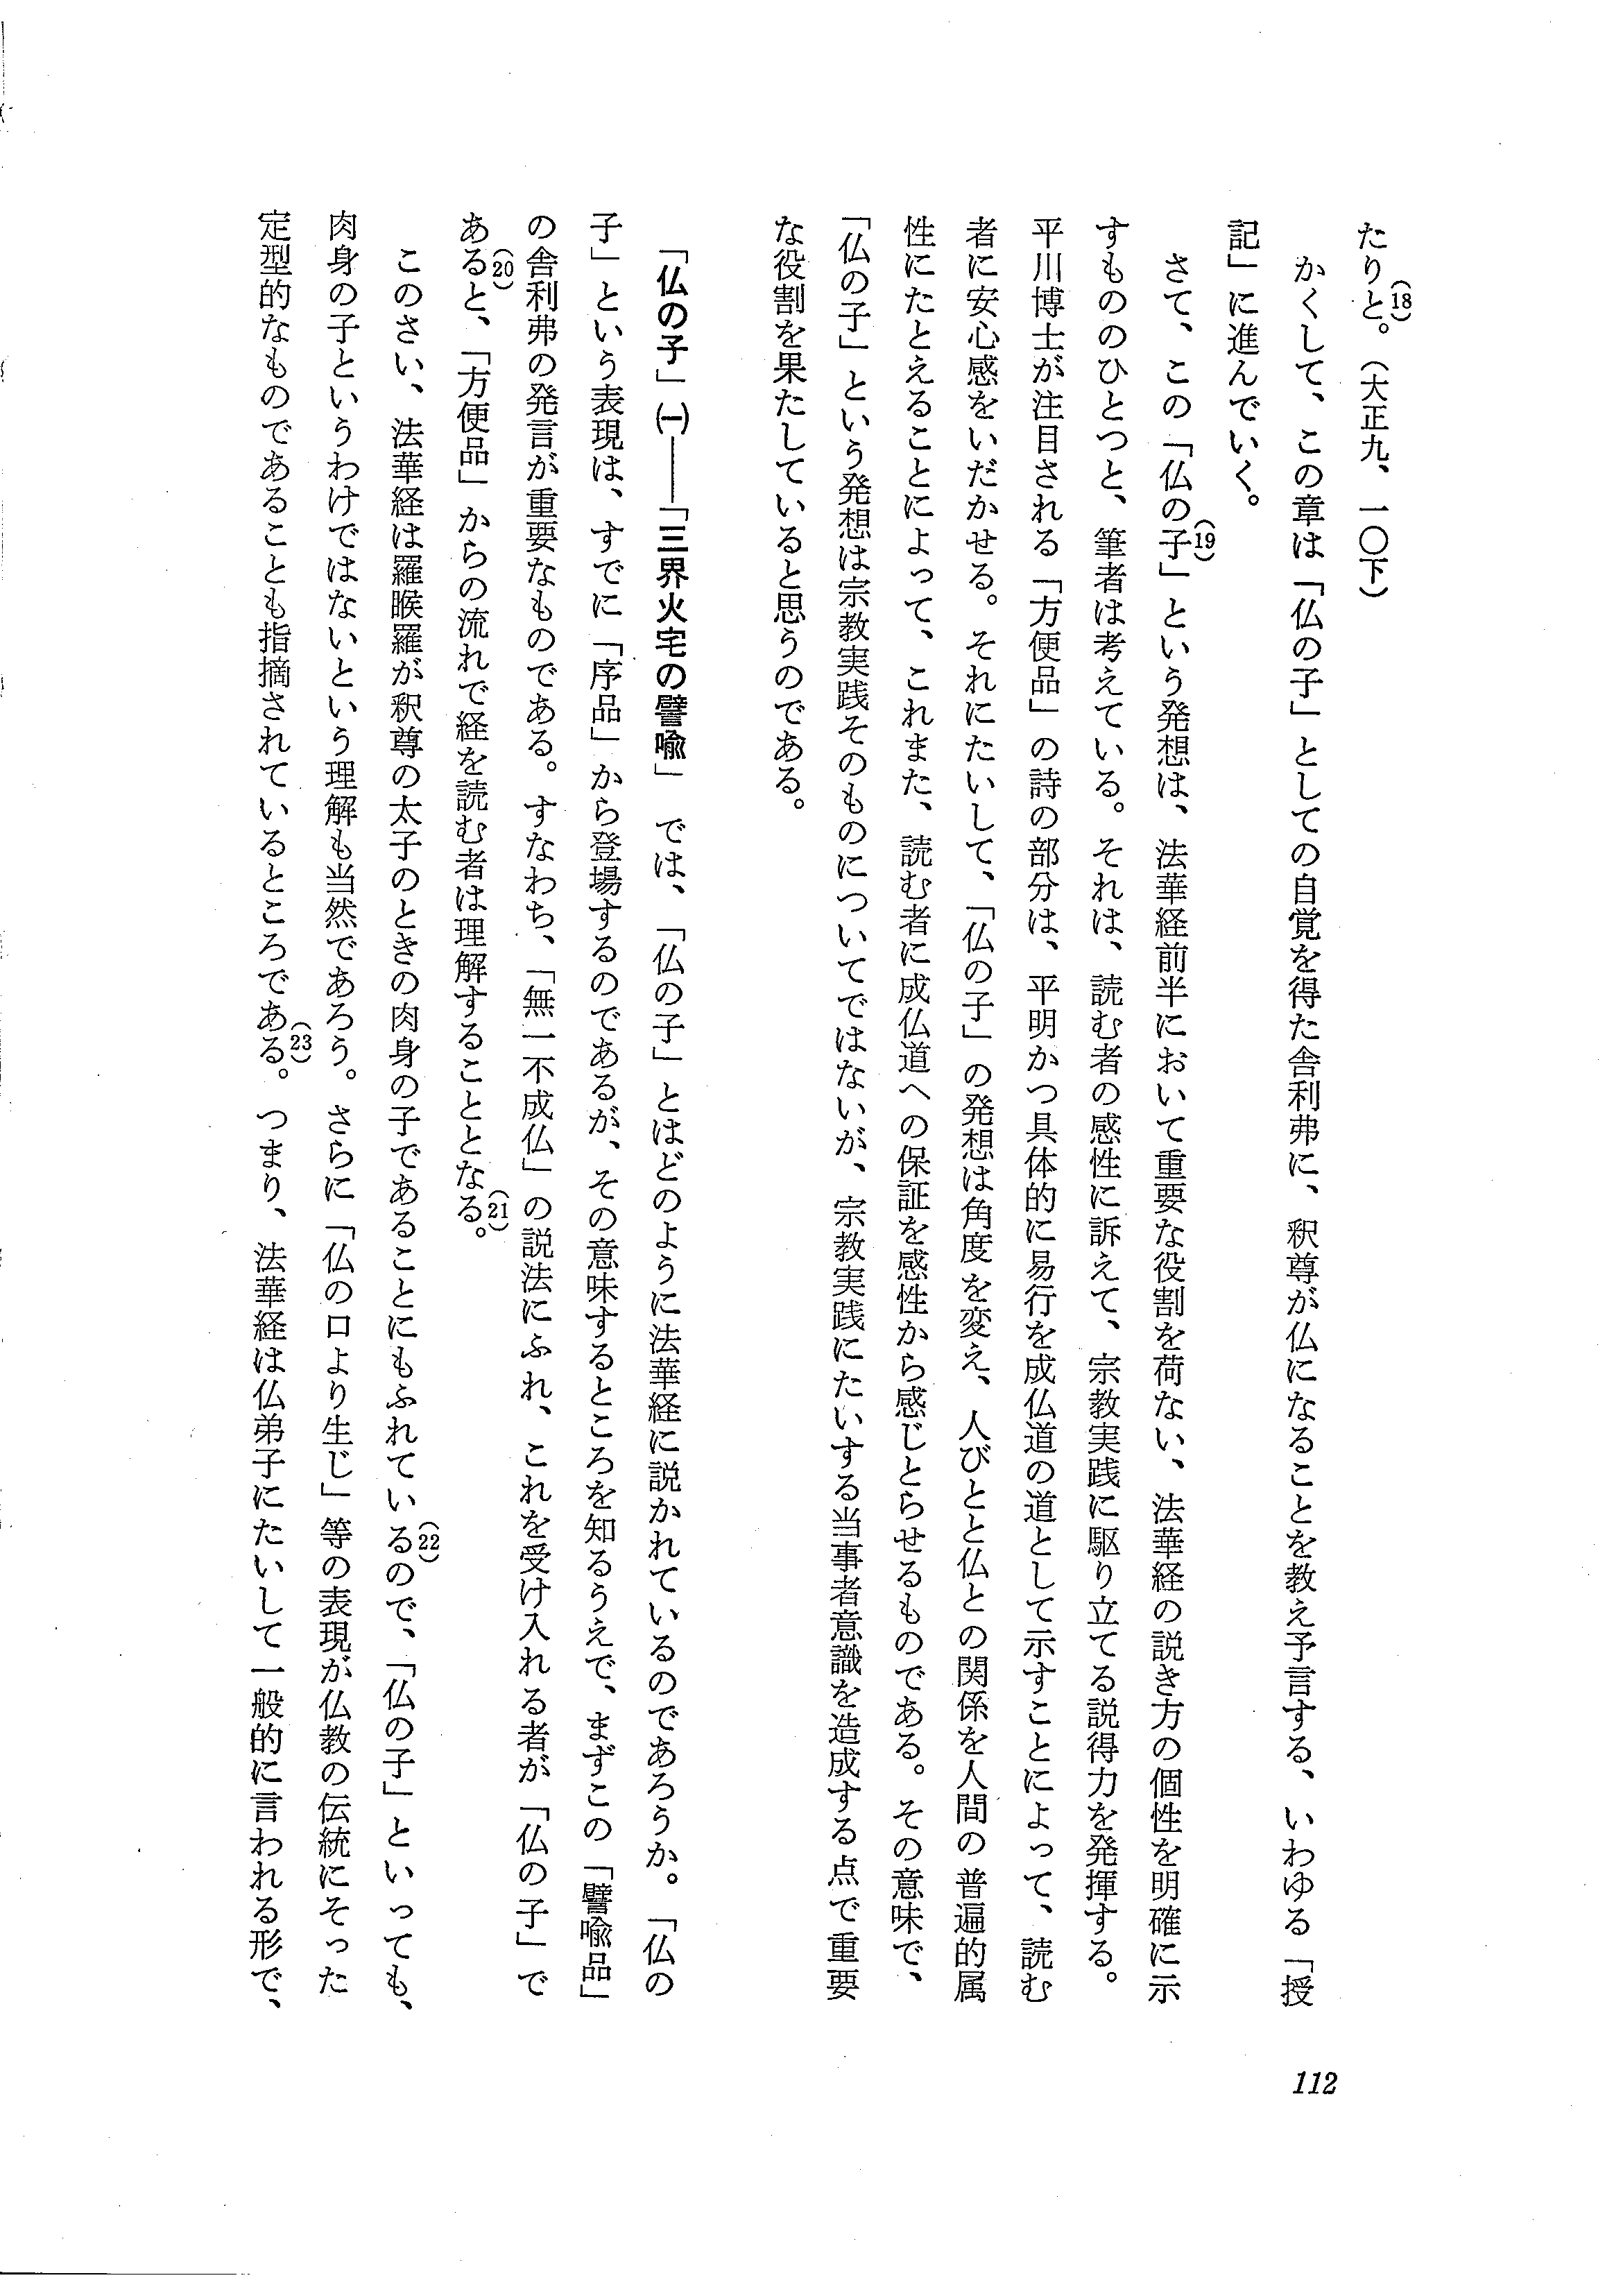 たりと。(18)（大正九、一〇下）
　かくして、この章は「仏の子」としての自覚を得た舎利弗に、釈尊が仏になることを教え予言する、いわゆる「授
記」に進んでいく。
　さて、この「仏の子」(19)という発想は、法華経前半において重要な役割を荷ない、法華経の説き方の個性を明確に示
すもののひとつと、筆者は考えている。それは、読む者の感性に訴えて、宗教実践に駆り立てる説得力を発揮する。
平川博士が注目される「方便品」の詩の部分は、平明かつ具体的に易行を成仏道の道として示すことによって、読む
者に安心感をいだかせる。それにたいして、「仏の子」の発想は角度を変え、人びとと仏との関係を人間の普遍的属
性にたとえることによって、これまた、読む者に成仏道への保証を感性から感じとらせるものである。その意味で、
「仏の子」という発想は宗教実践そのものについてではないが、宗教実践にたいする当事者意識を造成する点で重要
な役割を果たしていると思うのである。
「仏の子」㈠――「三界火宅の譬喩」　では、「仏の子」とはどのように法華経に説かれているのであろうか。「仏の
子」という表現は、すでに「序品」から登場するのであるが、その意味するところを知るうえで、まずこの「譬喩品」
の舎利弗の発言が重要なものである。すなわち、「無一不成仏」の説法にふれ、これを受け入れる者が「仏の子」で
ある(20)と、「方便品」からの流れで経を読む者は理解することとなる。(21)
　このさい、法華経は羅睺羅が釈尊の太子のときの肉身の子であることにもふれている(22)ので、「仏の子」といっても、
肉身の子というわけではないという理解も当然であろう。さらに「仏の口より生じ」等の表現が仏教の伝統にそった
定型的なものであることも指摘されているところである。(23)つまり、法華経は仏弟子にたいして一般的に言われる形で、
112